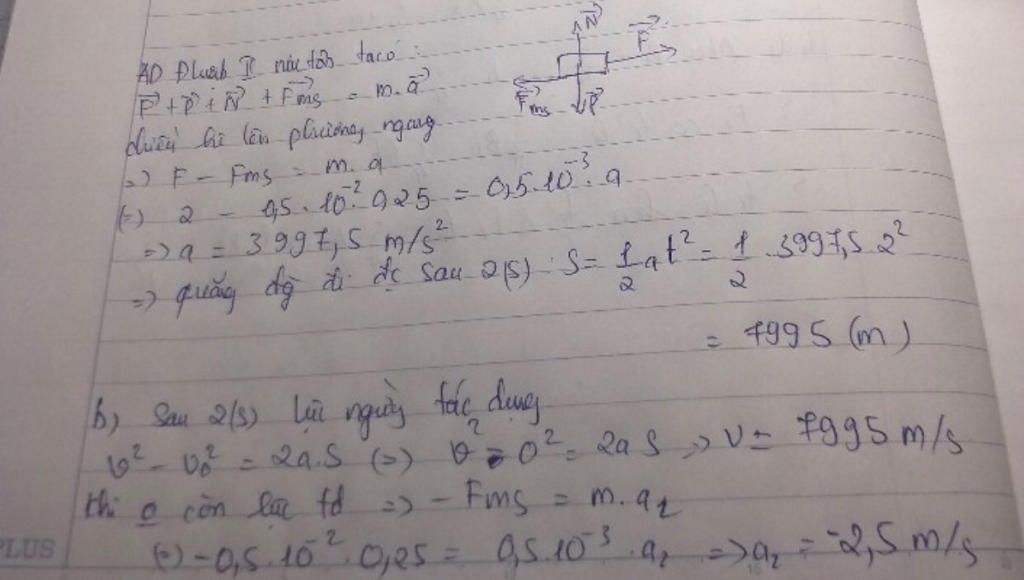 AD Đluật II niu tơn ta có:
F + P + N + Fms = m.a
N
F
Fms
P
chiếu lên phương ngang
=> F - Fms = m.a
(=) 2 - 0,5.10⁻².0,25 = 0,5.10⁻³.a
=> a = 3997,5 m/s²
=> quãng đg đi đc sau 2(s) : S = 1/2 at² = 1/2 .3997,5.2²
= 7995 (m)
b) Sau 2(s) lực ngừng tác dụng
v² - v₀² = 2a.S (=) v² - 0² = 2aS => v = 7995 m/s
thì o còn lực td => - Fms = m.a₂
(=) -0,5.10⁻².0,25 = 0,5.10⁻³.a₂ => a₂ = -2,5 m/s
PLUS